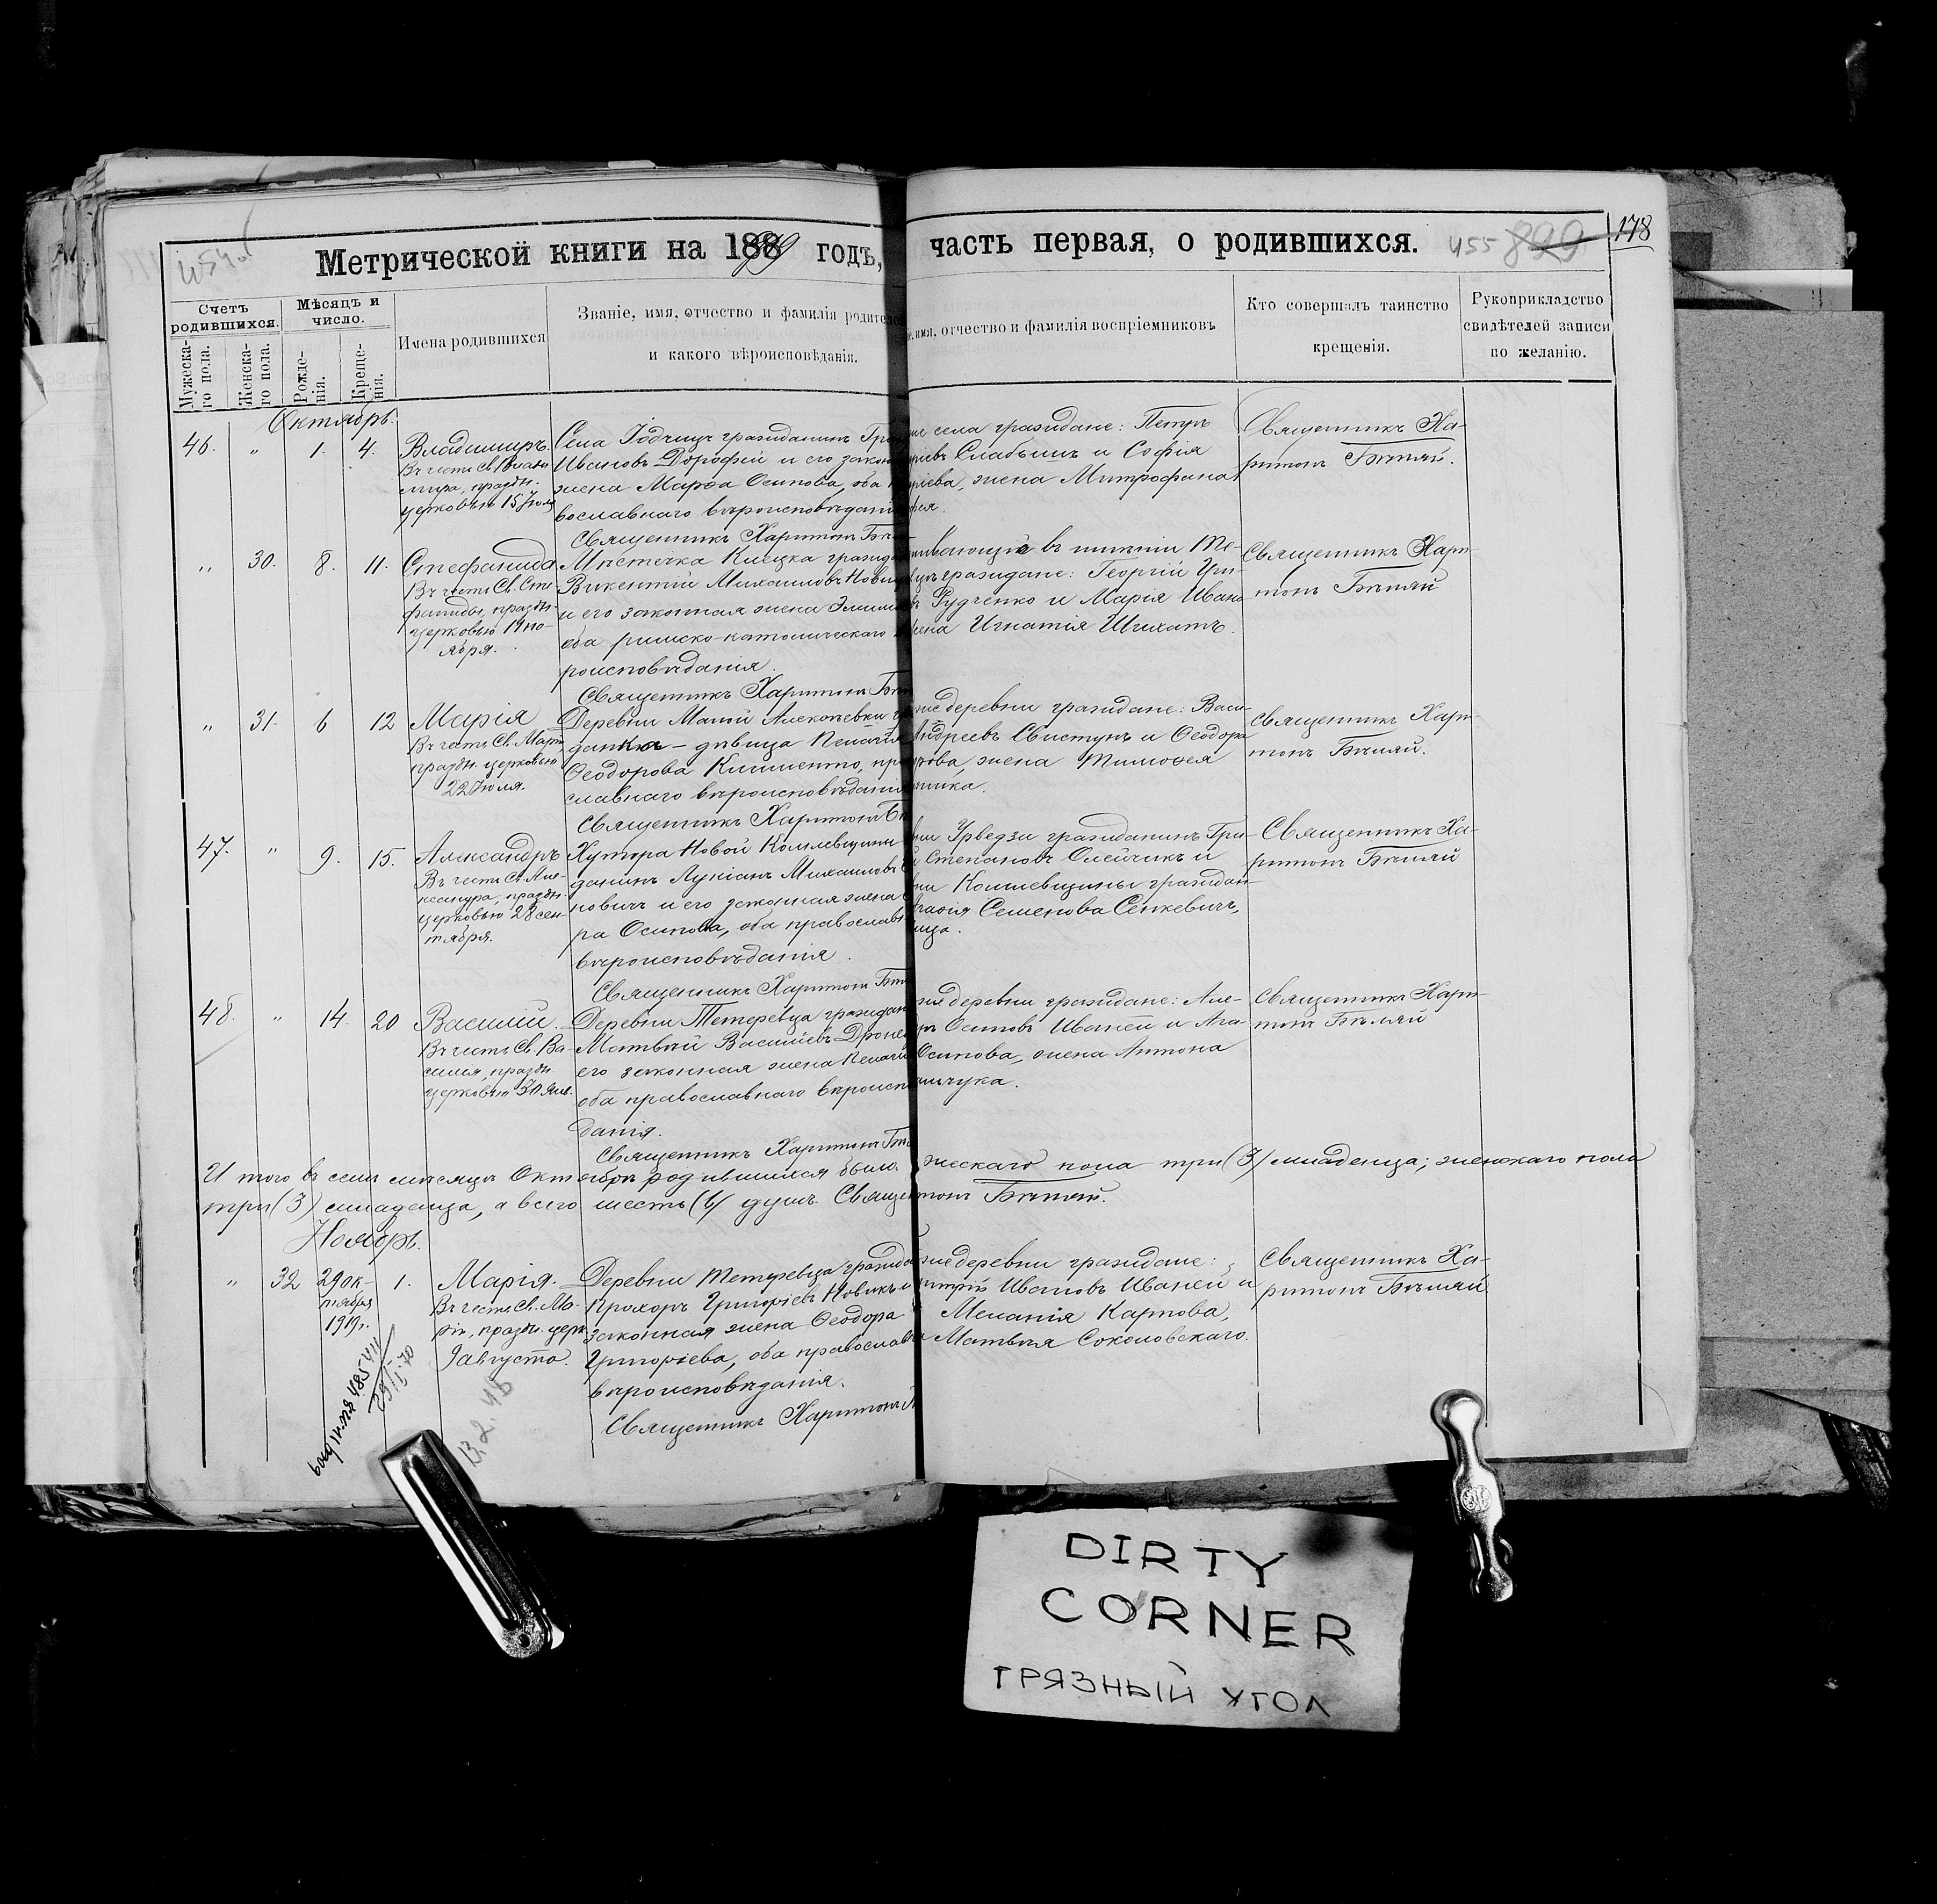 Метрической книги на 188 годъ, часть первая, о родившихся. 455 829 178
Счетъ родившихся.
Мѣсяцъ и число.
Имена родившихся
Званіе, имя, отчество и фамилія родителей
и какого вѣроисповѣданія.
имя, отчество и фамилія воспріемниковъ
Кто совершалъ таинство
крещенія.
Рукоприкладство
свидѣтелей записи
по желанію.
Мужеска-
го пола.
Женска-
го пола.
Рожде-
нія.
Креще-
нія.
Октябрь.
46. „ 1. 4.
Владиміръ.
Въ честь Св. Влади
міра, праздн.
церковью 15 Іюля
Села гражданинъ
Ивановъ Дорофей и его закон
жена Марѳа Осипова, оба
вославнаго вѣроисповѣданія
Священникъ Харитонъ
села граждане: Петръ
Слабышъ и Софія
жена Митрофана
Священникъ Ха-
ритонъ Бѣляй.
„ 30. 8. 11.
Стефанида
Въ честь Св. Сте
фаниды, праздн.
церковью 11 но-
ября.
Мѣстечка Клецка гражд
Викентій Михаиловъ
и его законная жена
оба римско-католическаго
роисповѣданія.
Священникъ Харитонъ
въ имѣніи Те-
граждане: Георгій
Рудченко и Марія Ивано
жена Игнатія
Священникъ Хари-
тонъ Бѣляй
„ 31. 6 12
Марія
Въ честь Св. Маріи
праздн. церковью
22 Іюля.
Деревни Малой Алексѣевки
данка – дѣвица Пелагія
Ѳеодорова Клименто, пра
славнаго вѣроисповѣданія
Священникъ Харитонъ
деревни граждане: Васи-
Андреевъ Свистунъ и Ѳеодора
жена Тимоѳея
Священникъ Хари-
тонъ Бѣляй.
47. „ 9. 15.
Александръ
Въ честь Св. Але-
ксандра, праздн.
церковью 28 сен-
тября.
Хутора Новой
данинъ Лукіанъ Михаиловъ
новичъ и его законная жена
ра Осипова, оба православн
вѣроисповѣданія.
Священникъ Харитонъ
Урведзи гражданинъ Гри-
Степановъ Олейчикъ и
граждан
Семенова Сенкевичъ,
Священникъ Ха-
ритонъ Бѣляй
48. „ 14. 20
Василій.
Въ честь Св. Ва-
силія, праздн
церковью 30 Янв.
Деревни Тетеревца граждан
Матвѣй Васильевъ
его законная жена Пелагія
оба православнаго вѣроиспо
данія.
Священникъ Харитонъ
деревни граждане: Але-
Осиповъ Иваней и Ага-
Осипова, жена Антона
Священникъ Хари-
тонъ Бѣляй
И того въ семъ мѣсяцѣ Октябрѣ родившихся было: жескаго пола три (3) младенца; женскаго пола
три (3) младенца, а всего шесть (6) душъ. Священ тонъ Бѣляй.
Ноябрь.
„ 32 29 ок-
тября
1919 г.
1.
Марія.
Въ честь Св. Ма-
ріи, праздн. церк
9 августа.
Деревни Тетеревца гражда
Прохоръ Григорьевъ Новикъ и
законная жена Ѳеодора
Григорьева, оба православн
вѣроисповѣданія.
Священникъ Харитонъ
деревни граждане:
Ивановъ Иваней и
Меланія Карпова,
Матвѣя Соколовскаго.
Священникъ Ха-
ритонъ Бѣляй
13.2.46
DIRTY
CORNER
ГРЯЗНЫЙ УГОЛ